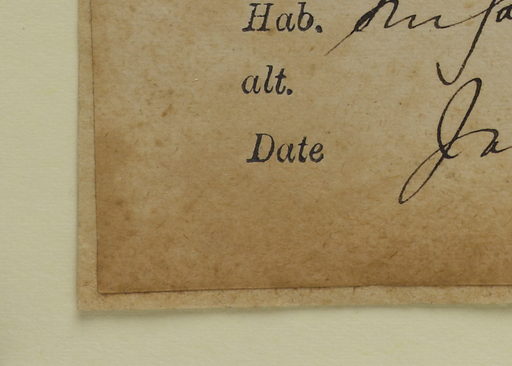 Hab.
alt.
Date Ja